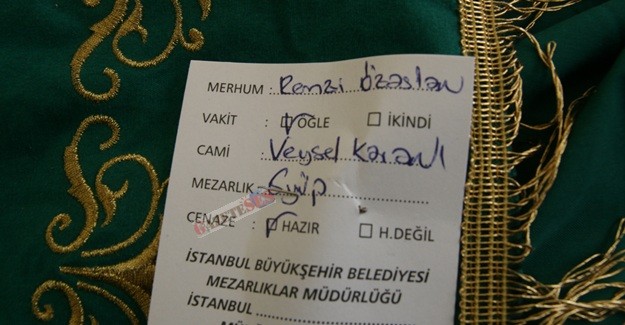 MERHUM : Remzi Özaslan
VAKİT : ☑ ÖĞLE ☐ İKİNDİ
CAMİ : Veysel Karani
MEZARLIK : Eyüp
CENAZE : ☑ HAZIR ☐ H.DEĞİL
İSTANBUL BÜYÜKŞEHİR BELEDİYESİ
MEZARLIKLAR MÜDÜRLÜĞÜ
İSTANBUL